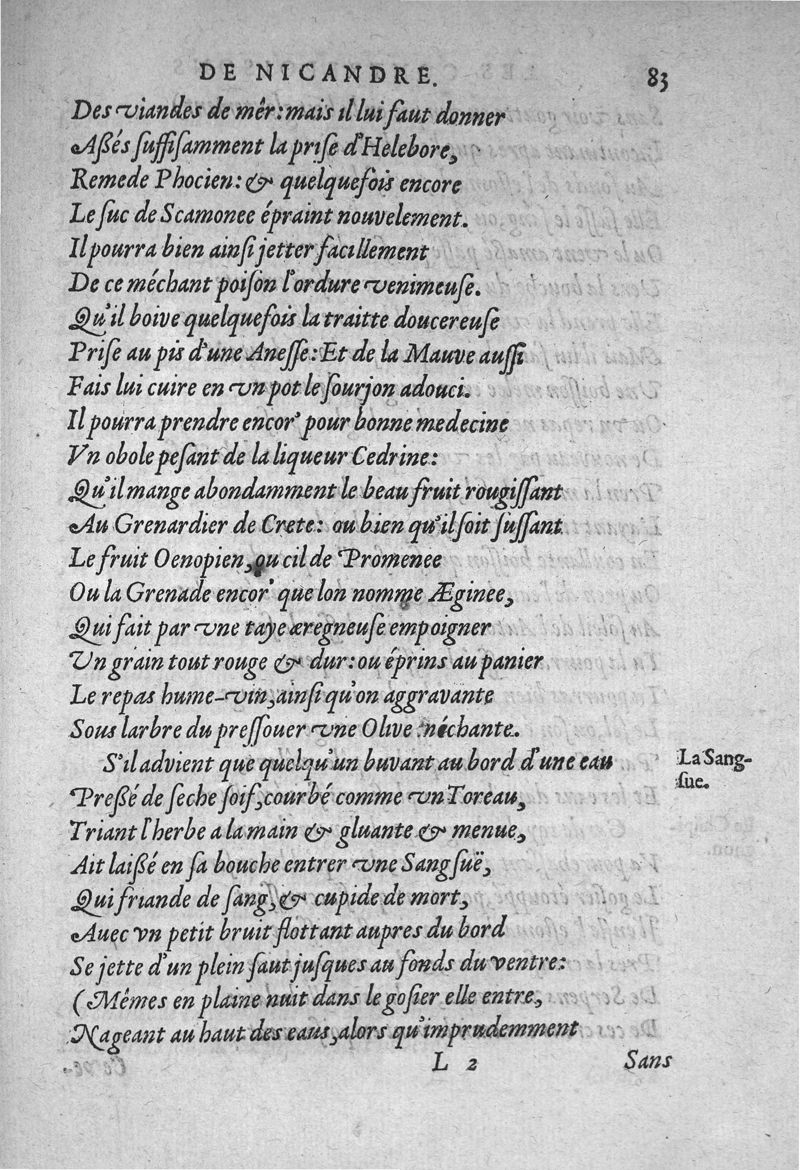 DE NICANDRE. 83
Des viandes de mêr: mais il lui faut donner
Aßés ſuffiſamment la priſe d'Helebore,
Remede Phocien: & quelquefois encore
Le ſuc de Scamonee épraint nouvelement.
Il pourra bien ainſi jetter facillement
De ce méchant poiſon l'ordure venimeuſe.
Qu'il boive quelquefois la traitte doucereuſe
Priſe au pis d'une Aneſſe: Et de la Mauve auſſi
Fais lui cuire en vn pot le ſourjon adouci.
Il pourra prendre encor' pour bonne medecine
Vn obole peſant de la liqueur Cedrine:
Qu'il mange abondamment le beau fruit rougiſſant
Au Grenardier de Crete: ou bien qu'il ſoit ſuſſant
Le fruit Oenopien, ou cil de Promenee
Ou la Grenade encor' que lon nomme Æginee,
Qui fait par vne taye æregneuſe empoigner
Vn grain tout rouge & dur: ou éprins au panier
Le repas hume-vin, ainſi qu'on aggravante
Sous larbre du preſſouer vne Olive méchante.
S'il advient que quelqu'un buvant au bord d'une eau
La Sang-
ſue.
Preßé de ſeche ſoif, courbé comme vn Toreau,
Triant l'herbe a la main & gluante & menue,
Ait laißé en ſa bouche entrer vne Sangſuë,
Qui friande de ſang, & cupide de mort,
Auec vn petit bruit flottant aupres du bord
Se jette d'un plein ſaut juſques au fonds du ventre:
(Mêmes en plaine nuit dans le goſier elle entre,
Nageant au haut des eaus, alors qu'imprudemment
L 2 Sans